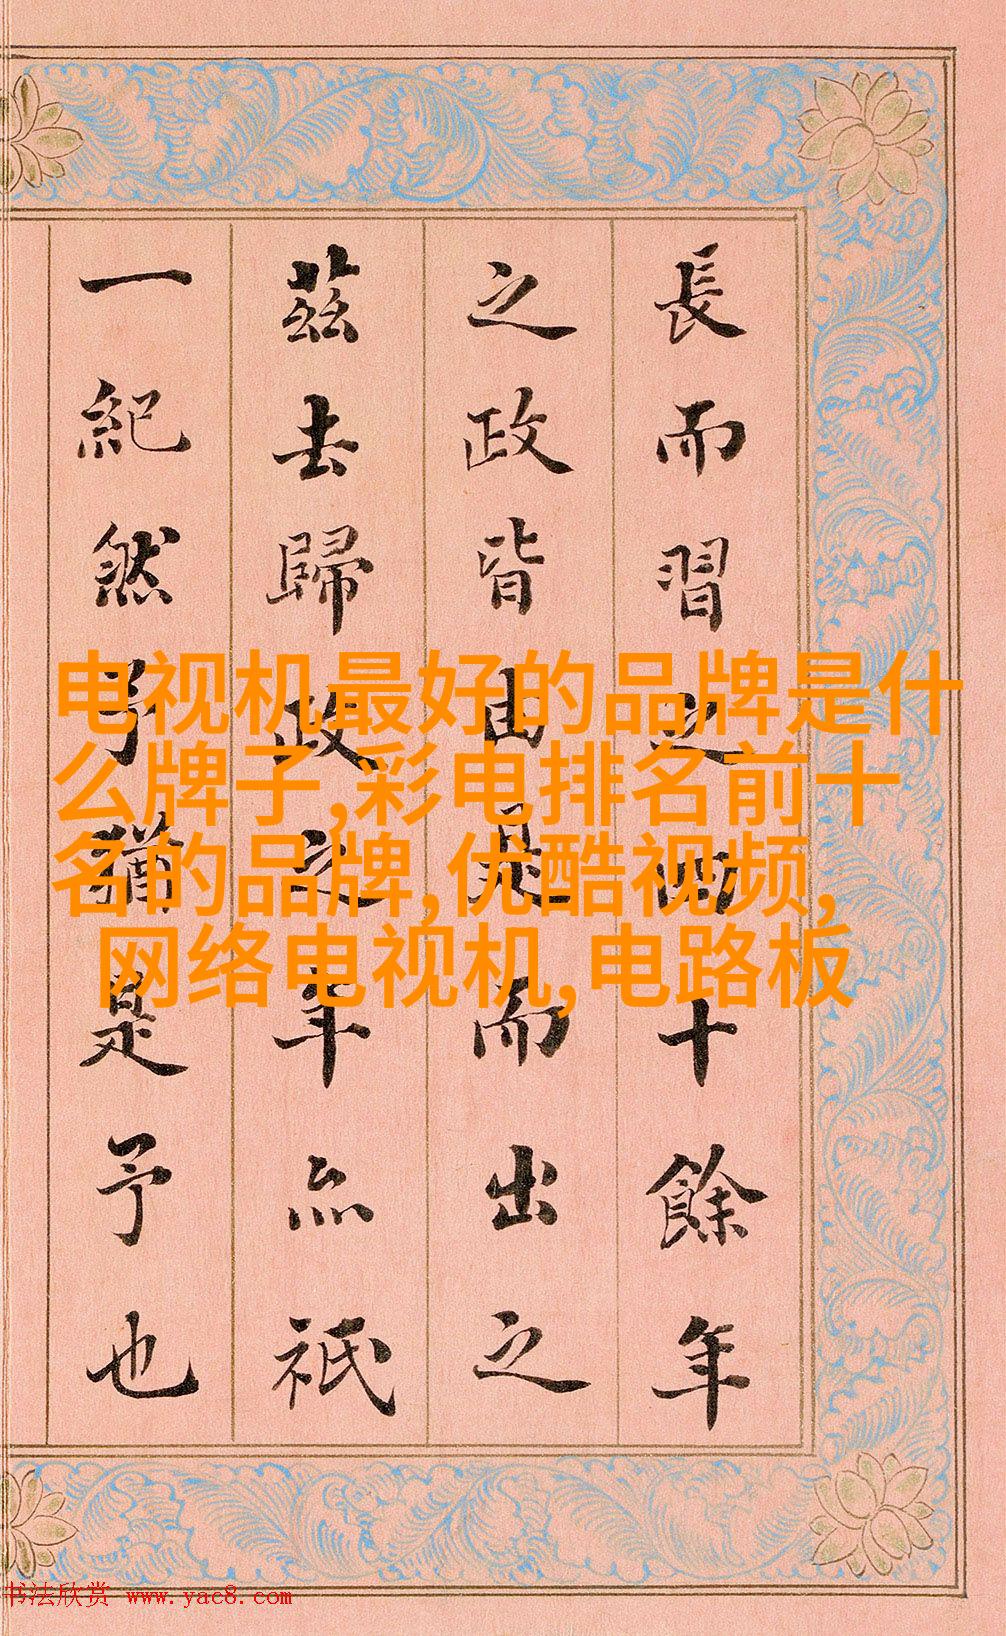 長而習之四十餘年
之政皆由是而出之
茲去歸政之年亦祇
一紀然予猶是予也
电视机最好的品牌是什
么牌子,彩电排名前十
名的品牌,优酷视频,
网络电视机,电路板
书法欣赏 www.yac8.com